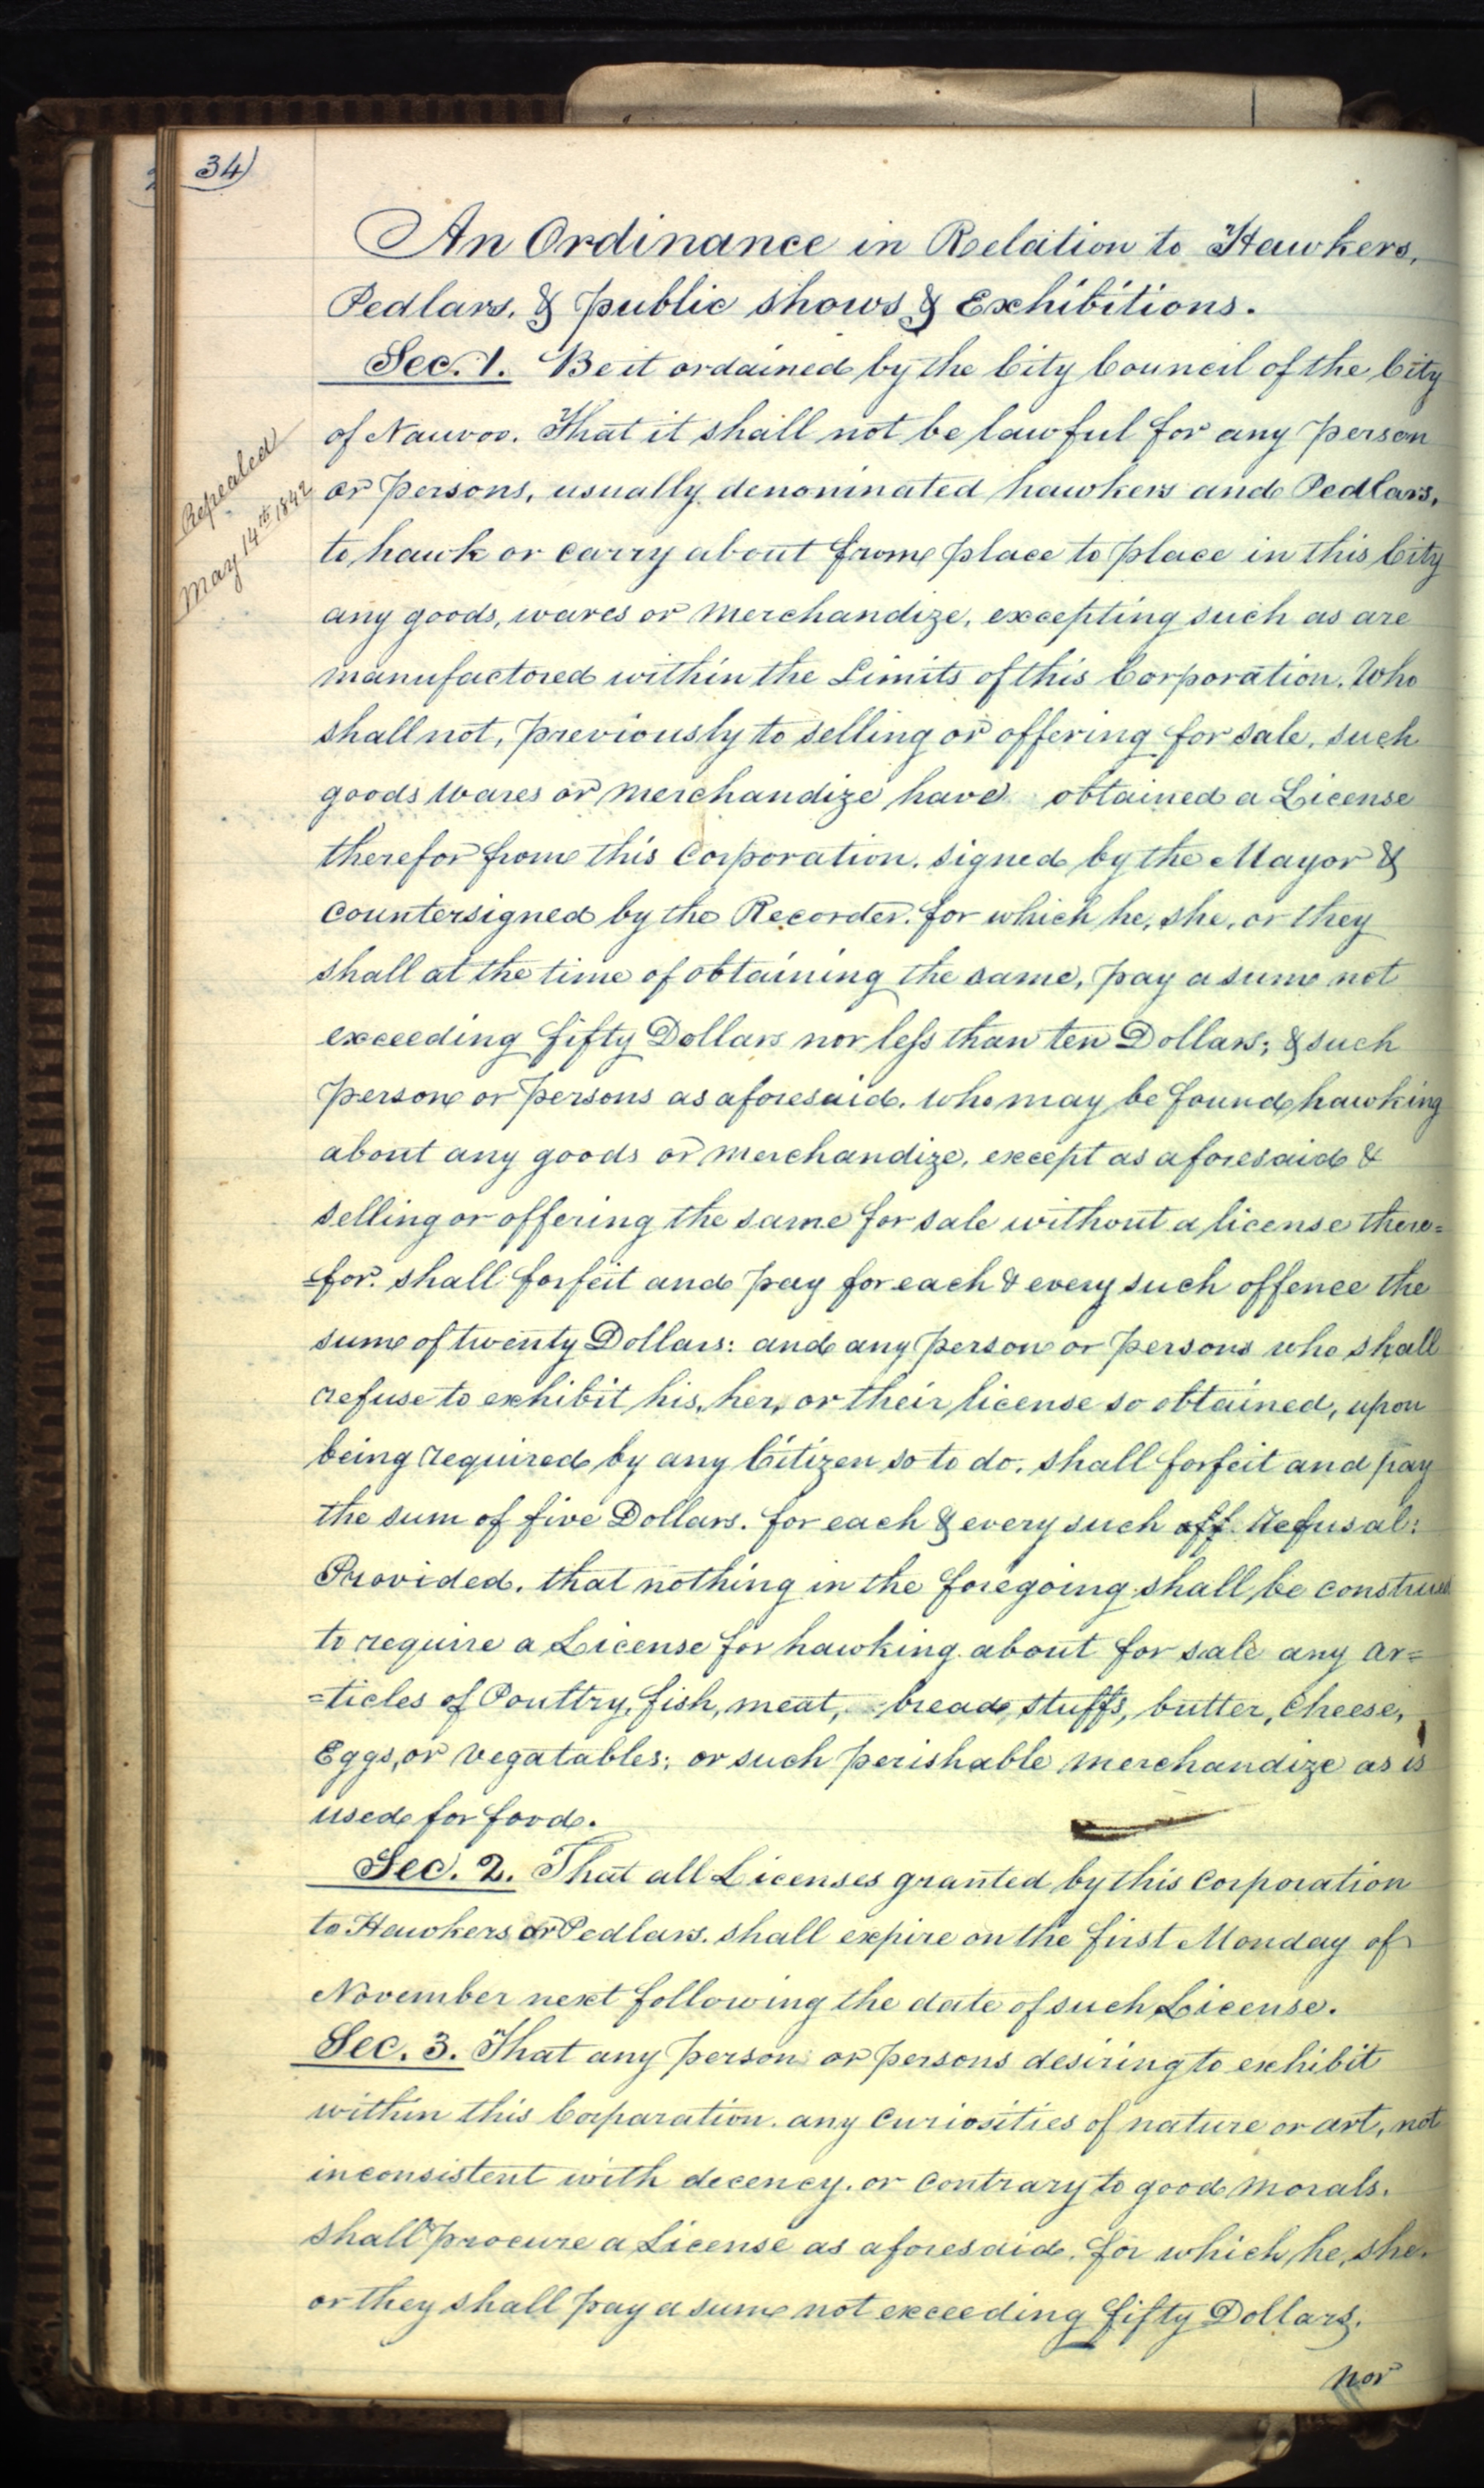 34)
An Ordinance in Relation to Hawkers,
Pedlars, & public shows & Exhibitions.
Sec. 1. Be it ordained by the City Council of the City
of Nauvoo. That it shall not be lawful for any person
or persons, usually denominated hawkers and Pedlars,
to hawk or carry about from place to place in this City
any goods, wares or merchandize, excepting such as are
manufactored within the Limits of this Corporation. Who
shall not, previously to selling or offering for sale, such
goods wares or merchandize have obtained a License
therefor from this Corporation. signed by the Mayor &
countersigned by the Recorder. for which he, she, or they
shall at the time of obtaining the same, pay a sum not
exceeding fifty Dollars nor less than ten Dollars; & such
person or persons as aforesaid. who may be found hawking
about any goods or merchandize, except as aforesaid &
selling or offering the same for sale without a license there=
=for. shall forfeit and pay for each & every such offence the
sum of twenty Dollars: and any person or persons who shall
refuse to exhibit his, her, or their license so obtained, upon
being required by any Citizen so to do, shall forfeit and pay
the sum of five Dollars. for each & every such off. refusal:
Provided, that nothing in the foregoing shall be construed
to require a License for hawking about for sale any ar=
=ticles of Poultry, fish, meat, bread, stuffs, butter, cheese,
Eggs, or vegatables; or such perishable merchandize as is
used for food.
Sec. 2. That all Licenses granted by this corporation
to Hawkers or Pedlars. shall expire on the first Monday of
November next following the date of such License.
Sec. 3. That any person or persons desiring to exhibit
within this Corparation. any curiosities of nature or art, not
inconsistent with decency. or contrary to good morals.
shall procure a License as aforesaid, for which he, she,
or they shall pay a sum not exceeding fifty Dollars.
nor
Repealed
May 14th 1842